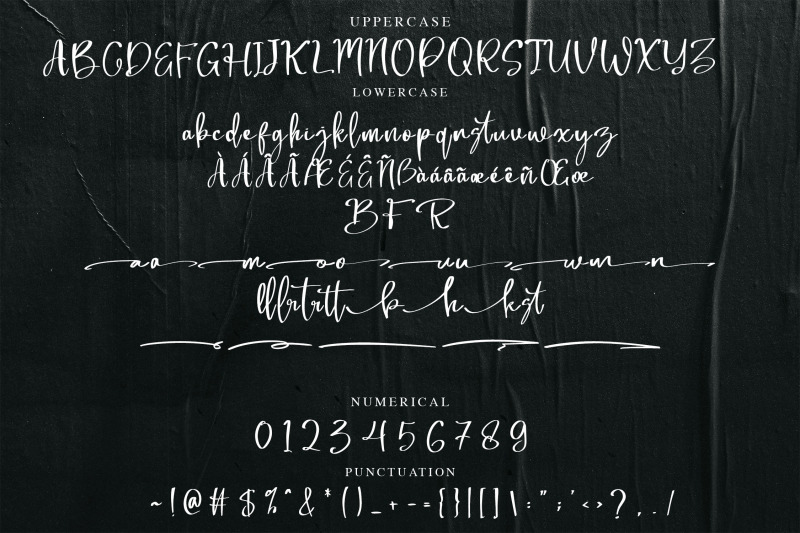 UPPERCASE
ABCDEFGHIJKLMNOPQRSTUVWXYZ
LOWERCASE
abcdefghijklmnopqrstuvwxyz
ÀÁÂÃÆÉÊÑBàáâãæéêñŒœ
BFR
aa m oo uu wm n
b h k st
NUMERICAL
0123456789
PUNCTUATION
~!@#$%^&*()_+-={}|[]\:";'<>?,./